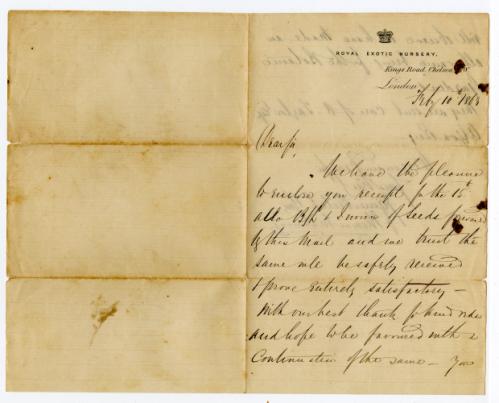 ROYAL EXOTIC NURSERY,
Kings Road, Chelsea, SW
London,
Feb 10th 1868
Dear Sir
We have the pleasure
to enclose you receipt for the £5
also B/L & Invoice of Seeds forward
by this Mail and we trust the
same will be safely received
& prove entirely satisfactory —
With our best thanks for kind order
and hope to be favoured with a
Continuation of the same — You